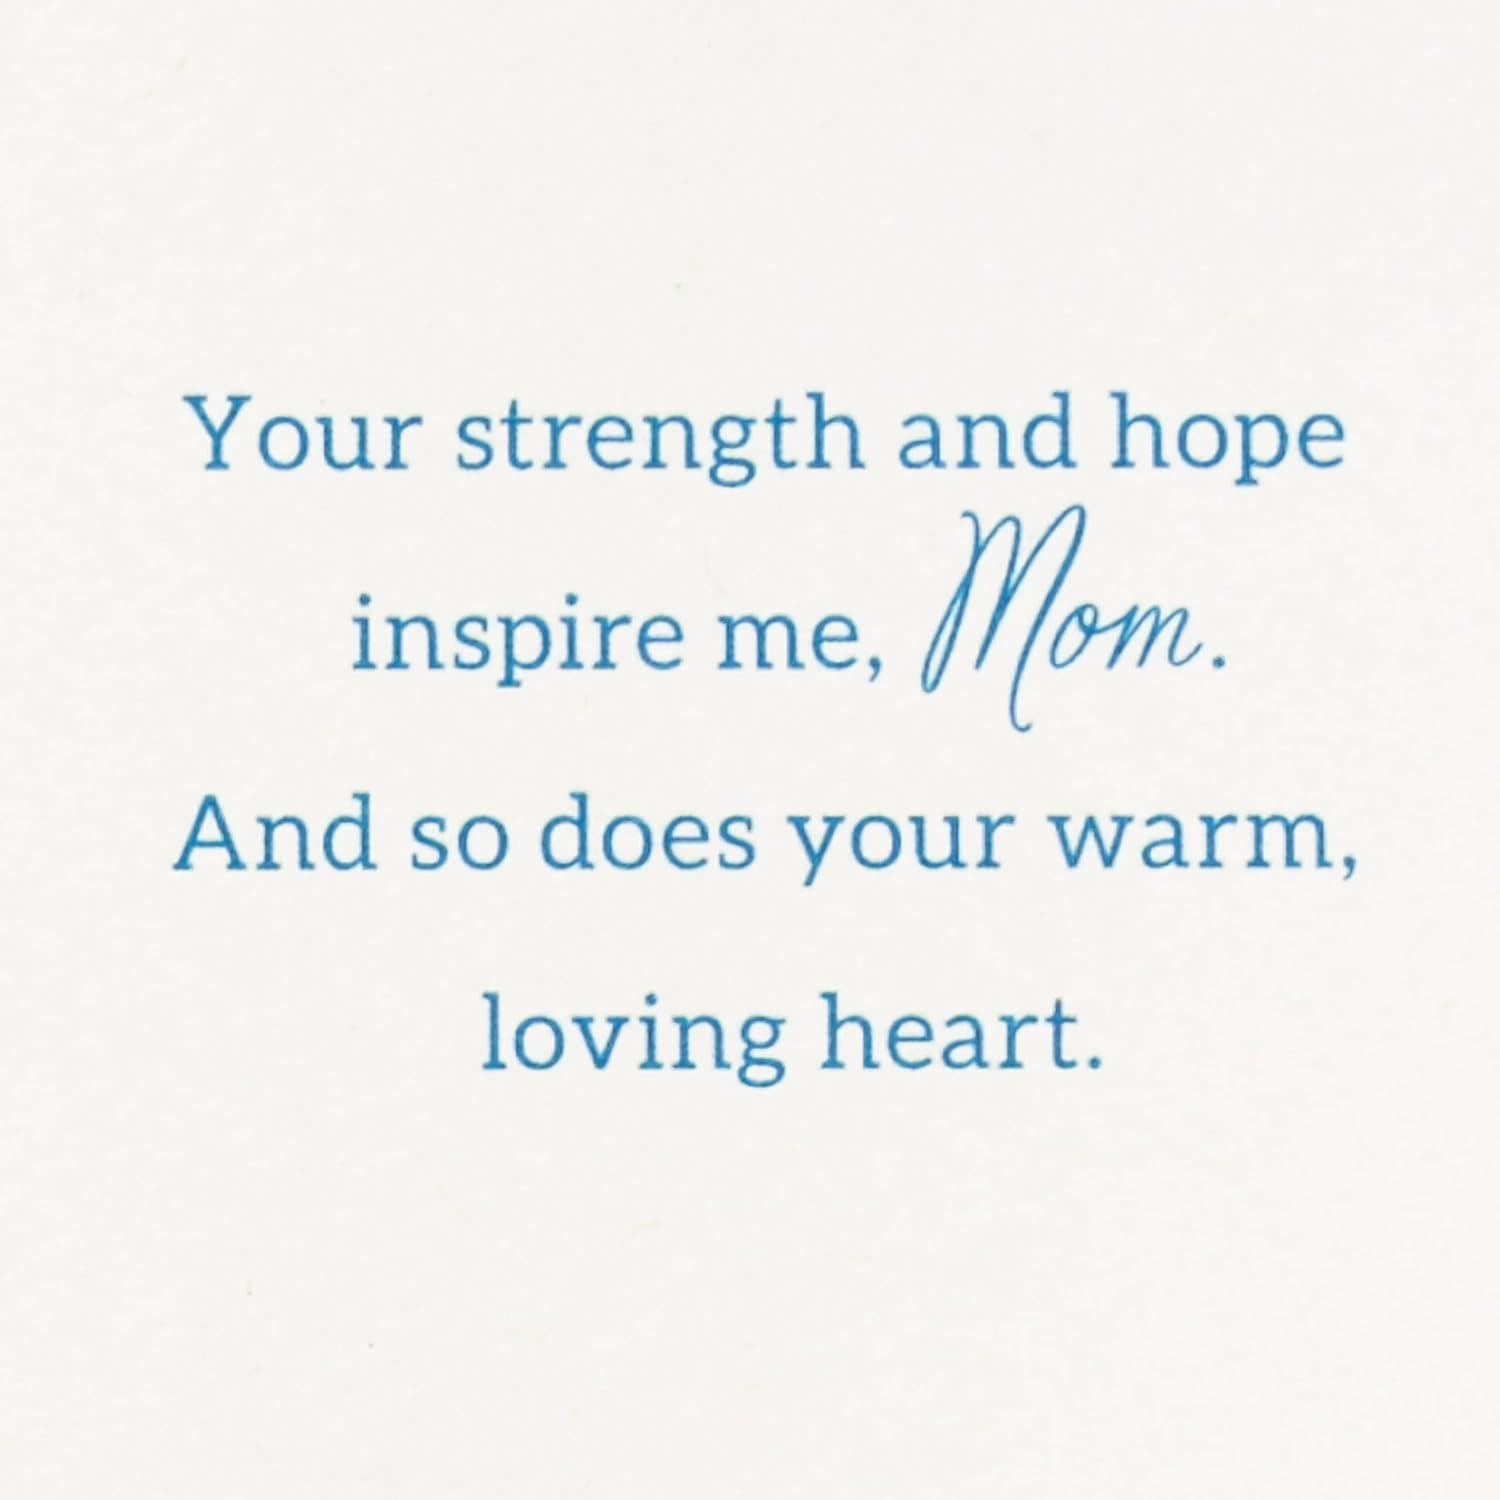 Your strength and hope
inspire me, Mom.
And so does your warm,
loving heart.